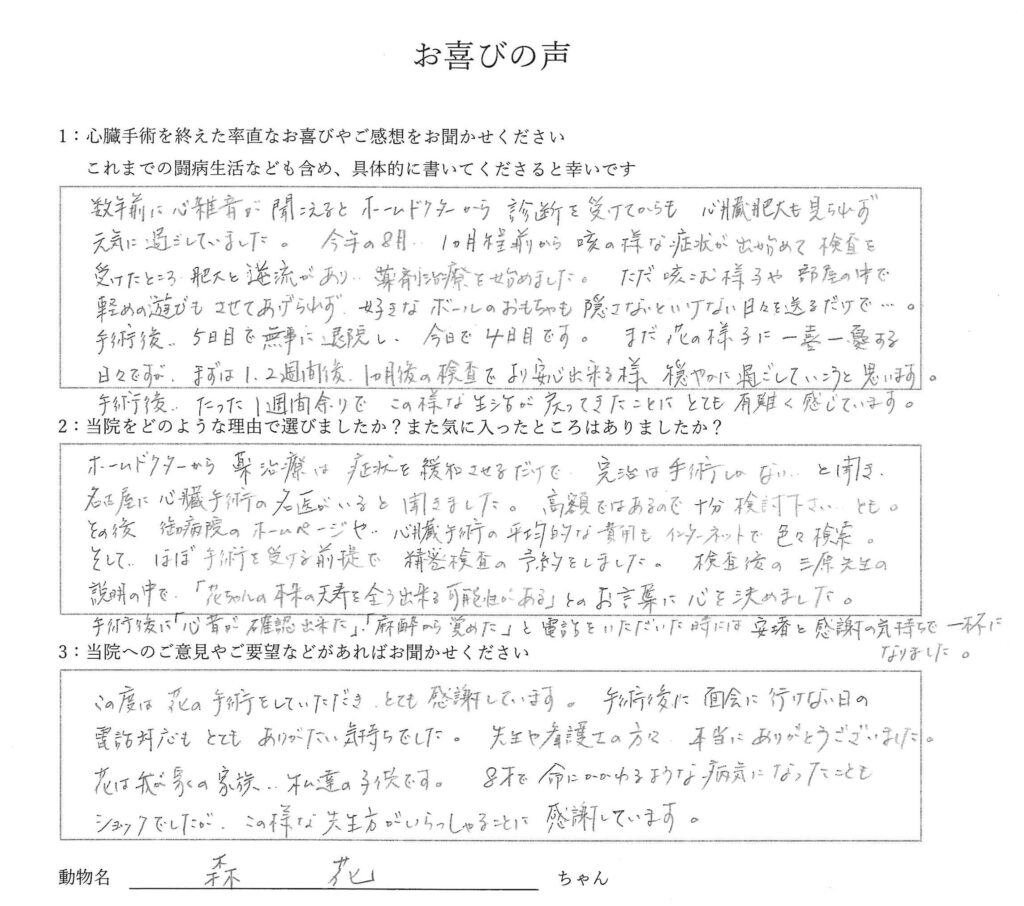 お喜びの声
1：心臓手術を終えた率直なお喜びやご感想をお聞かせください
これまでの闘病生活なども含め、具体的に書いてくださると幸いです
数年前に心雑音が聞こえるとホームドクターから診断を受けてからも 心臓肥大も見られず
元気に過ごしていました。 今年の8月‥1ヶ月程前から咳の様な症状が出始めて検査を
受けたところ肥大と逆流があり‥薬剤治療を始めました。 ただ咳こむ様子や部屋の中で
軽めの遊びもさせてあげられず、好きなボールのおもちゃも隠さないといけない日々を送るだけで…。
手術後‥5日目で無事に退院し、今日で4日目です。 まだ花の様子に一喜一憂する
日々ですが、まずは1.2週間後、1ヶ月後の検査でより安心出来る様、穏やかに過ごしていこうと思います。
手術後‥たった1週間余りで この様な生活が戻ってきたことにとても有難く感じています。
2：当院をどのような理由で選びましたか？また気に入ったところはありましたか？
ホームドクターから薬治療は症状を緩和させるだけで、完治は手術しかない‥と聞き、
名古屋に心臓手術の名医がいると聞きました。高額ではあるので十分検討下さい‥とも。
その後 御病院のホームページや‥心臓手術の平均的な費用もインターネットで色々検索。
そして‥ほぼ手術を受ける前提で 精密検査の予約をしました。 検査後の三原先生の
説明の中で、「花ちゃんの本来の天寿を全う出来る可能性がある」とのお言葉に心を決めました。
手術後に「心音が確認出来た」、「麻酔から覚めた」と電話をいただいた時には安堵と感謝の気持ちで一杯に
なりました。
3：当院へのご意見やご要望などがあればお聞かせください
この度は花の手術をしていただき、とても感謝しています。 手術後に面会に行けない日の
電話対応もとてもありがたい気持ちでした。 先生や看護士の方々、本当にありがとうございました。
花は我が家の家族‥私達の子供です。 8才で命にかかわるような病気になったことも
ショックでしたが、この様な先生方がいらっしゃることに感謝しています。
動物名 森 花 ちゃん